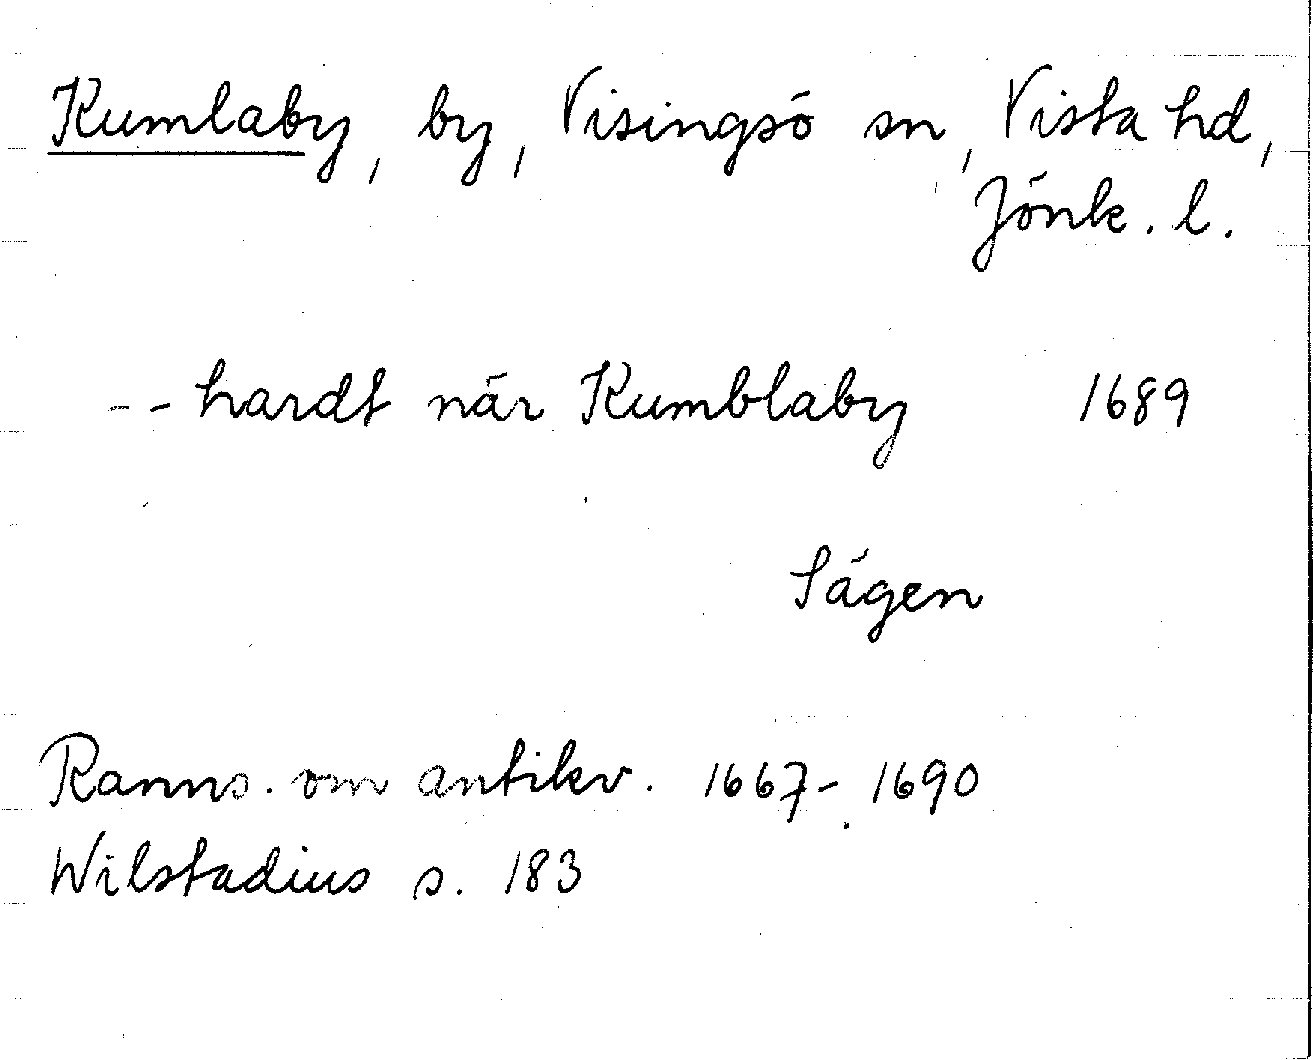 Kumlaby, by, Visingsö sn, Vista hd,
Jönk. l.
-- hardt när Kumblaby 1689
Sägen
Ranns. om antikv. 1667-1690
Wilstadius s. 183